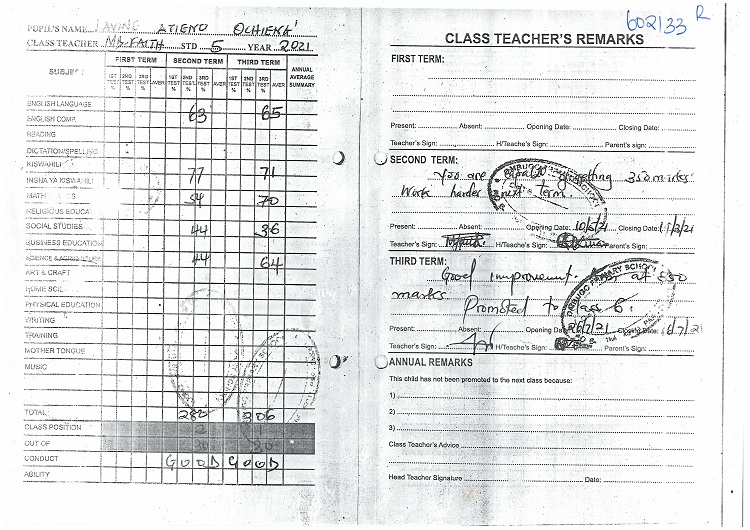 602133 R
PUPIL'S NAME LAVINE ATIENO OCHIENG'
CLASS TEACHER Ms FAITH STD 5 YEAR 2021
SUBJECT
FIRST TERM SECOND TERM THIRD TERM ANNUAL AVERAGE SUMMARY
1ST TEST % 2ND TEST % 3RD TEST % AVER 1ST TEST % 2ND TEST % 3RD TEST % AVER 1ST TEST % 2ND TEST % 3RD TEST % AVER
ENGLISH LANGUAGE 63 65
ENGLISH COMP.
READING
DICTATION/SPELLING
KISWAHILI
INSHA YA KISWAHILI 77 71
MATHEMATICS 54 70
RELIGIOUS EDUCAT
SOCIAL STUDIES 44 36
BUSINESS EDUCATION
SCIENCE & AGRICULTURE 44 64
ART & CRAFT
HOME SCIE
PHYSICAL EDUCATION
WRITING
TRAINING
MOTHER TONGUE
MUSIC
TOTAL 282 306
CLASS POSITION
OUT OF
CONDUCT GOOD GOOD
ABILITY
CLASS TEACHER'S REMARKS
FIRST TERM:
Present: Absent: Opening Date: Closing Date:
Teacher's Sign: H/Teache's Sign: Parent's sign:
SECOND TERM:
You are capable getting 350 marks.
Work harder next term.
Present: Absent: Opening Date: 10/5/21 Closing Date:
Teacher's Sign: H/Teachers Sign: Parents Sign:
THIRD TERM:
Good improvement. at 350
marks Promoted to class 6.
OMBUGO PRIMARY SCHOOL
Present: Absent: Opening Date 26/7/21 Closing Date:
Teacher's Sign: H/Teache's Sign: Parent's Sign:
ANNUAL REMARKS
This child has not been promoted to the next class because:
1)
2)
3)
Class Teacher's Advice
Head Teacher Signature Date: